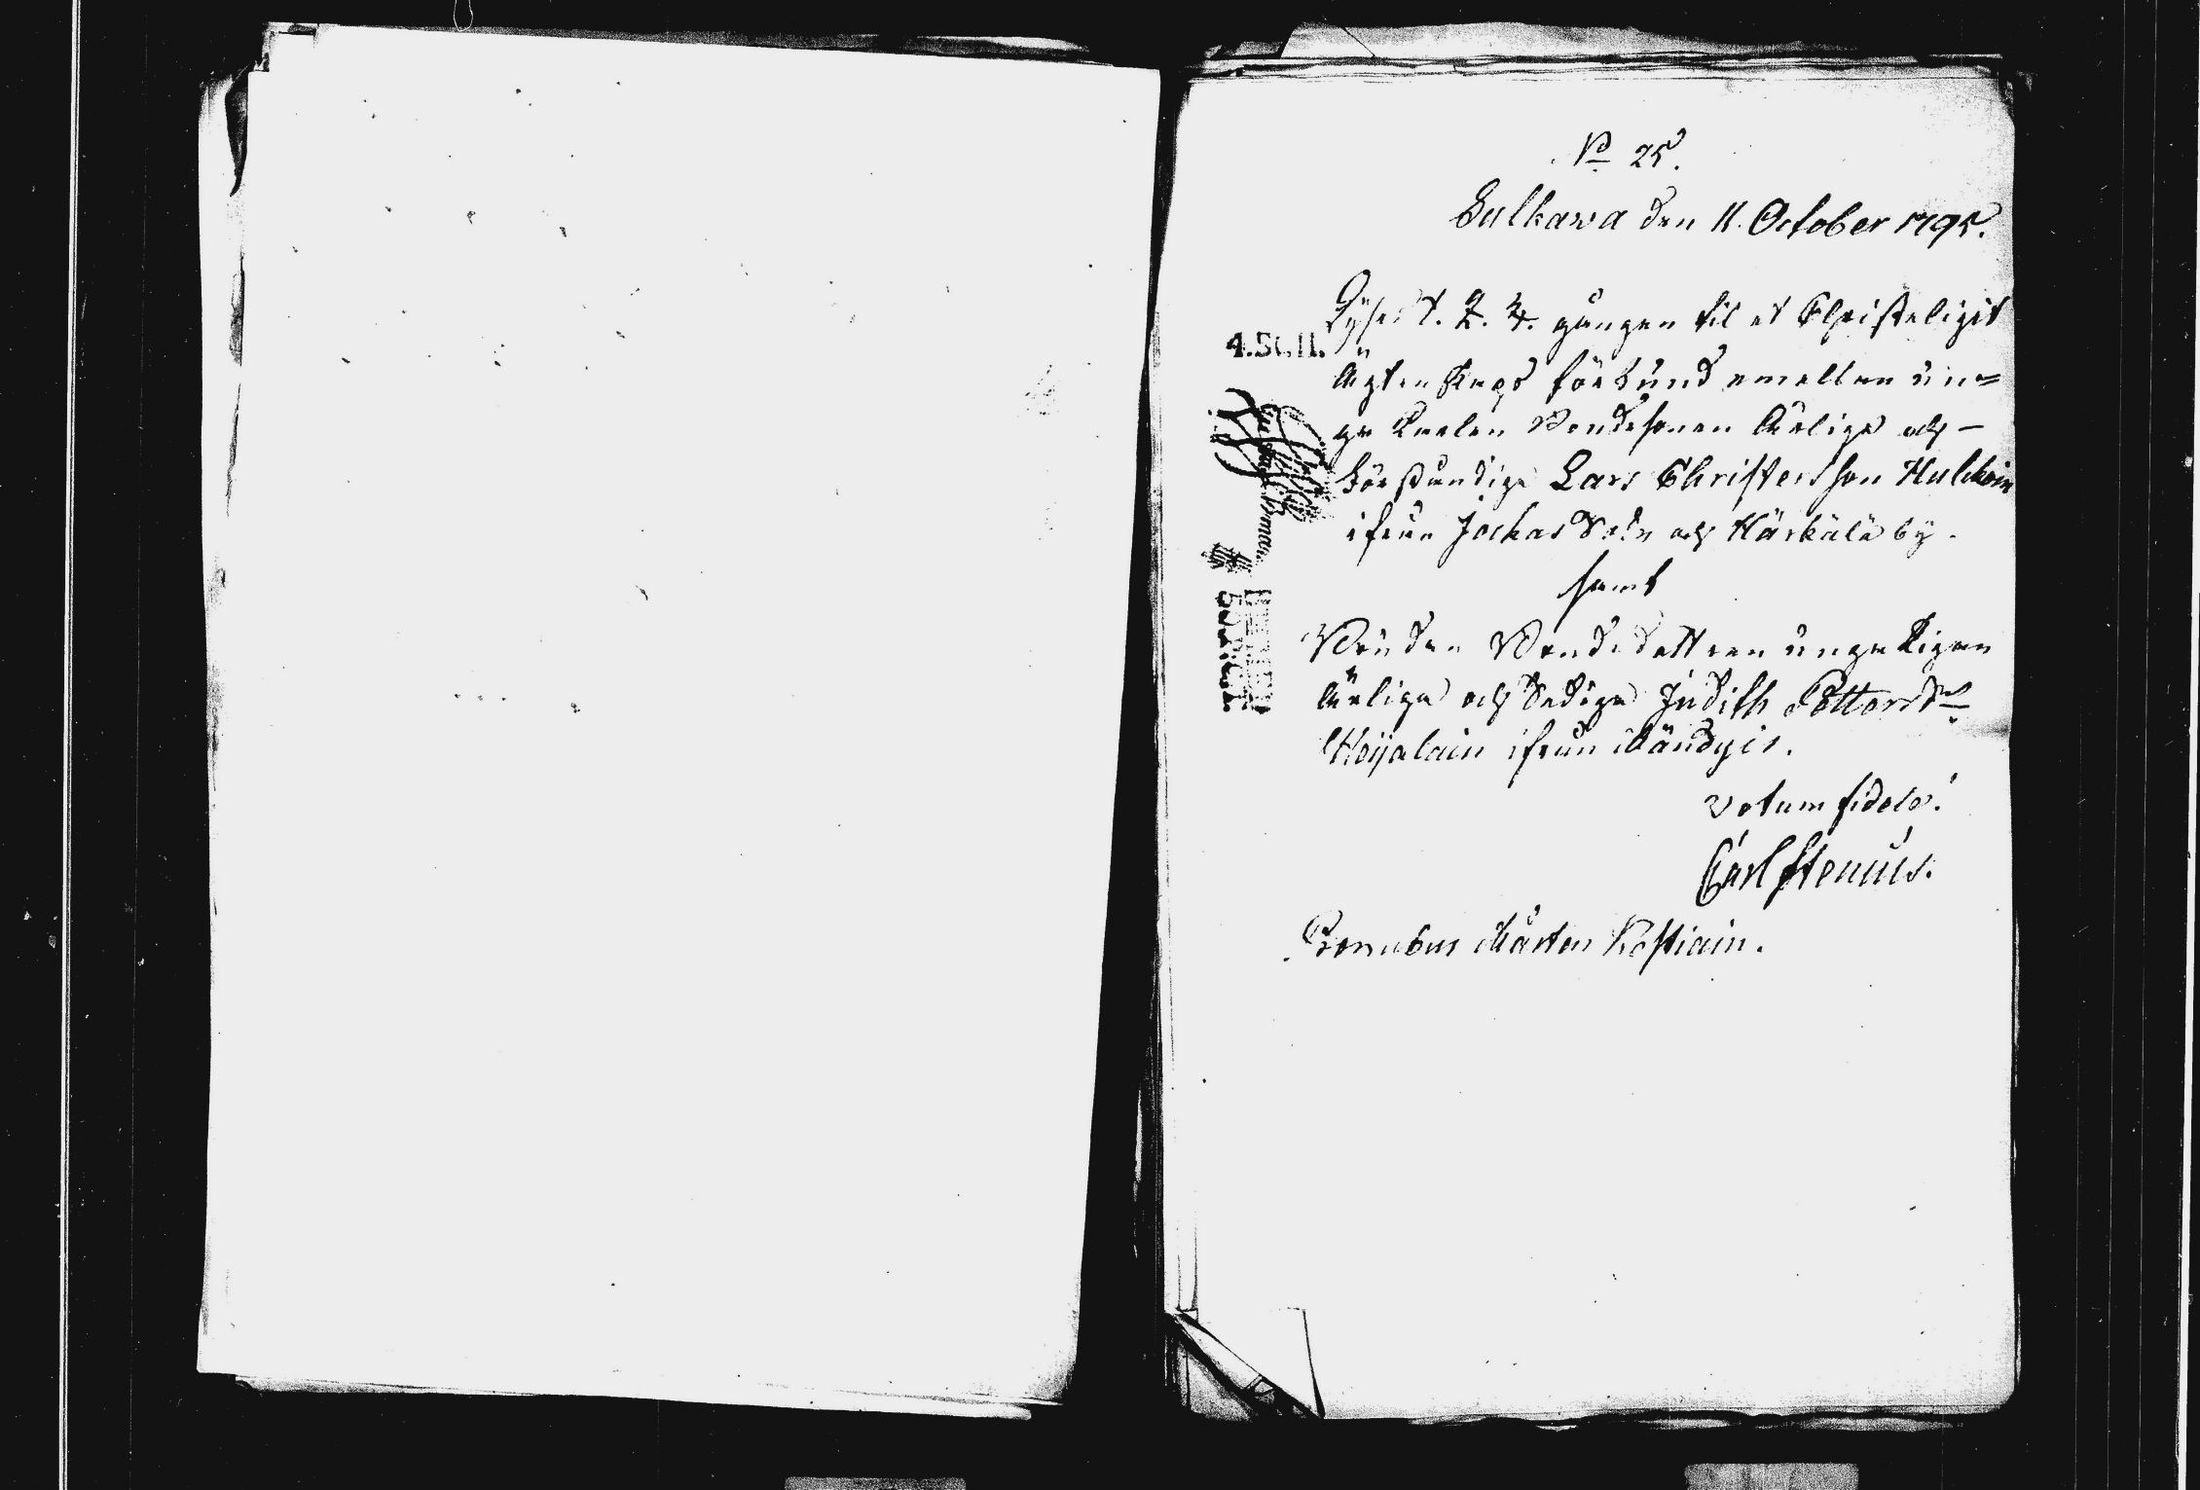 No 25.
Sulkawa den 11. October 1795.
Lyses 1. 2. 3. gången til et Christeligit
4.St. 11.
Ägtenskaps förbund emellan un=
ge Karlen Bondesonen Ärlige och
förståndige Lars Christersson Hulckoin
ifrån Jockas Sokn och Härkälä by.
samt
Bruden Bondedottren unga Pigan
Ärliga och Sediga Judith Pettersdr
Heijalain ifrån Mändyis.
Votum fidele!
Carl Stenius.
Pronubus Mårten Kostiain.